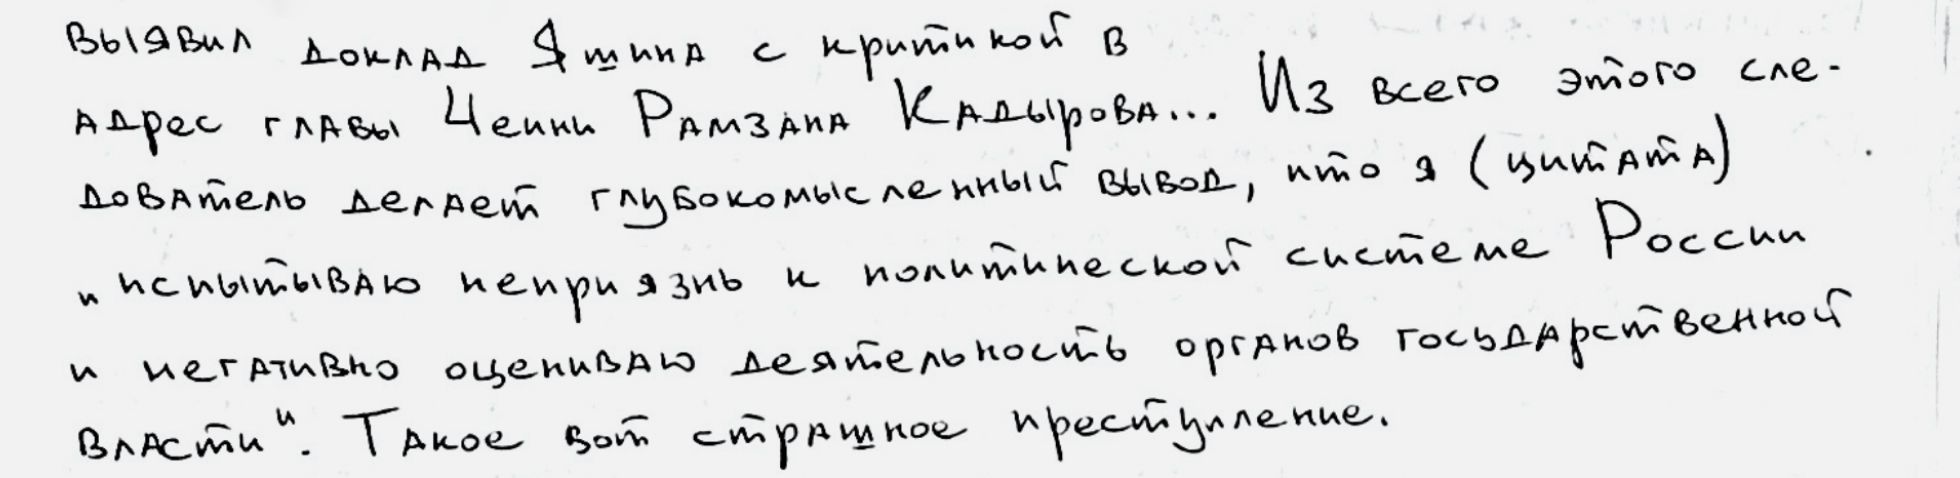 выявил доклад Яшина с критикой в
адрес главы Чечни Рамзана Кадырова... Из всего этого сле-
дователь делает глубокомысленный вывод, что я (цитата)
"испытываю неприязнь к политической системе России
и негативно оцениваю деятельность органов государственной
власти". Такое вот страшное преступление.